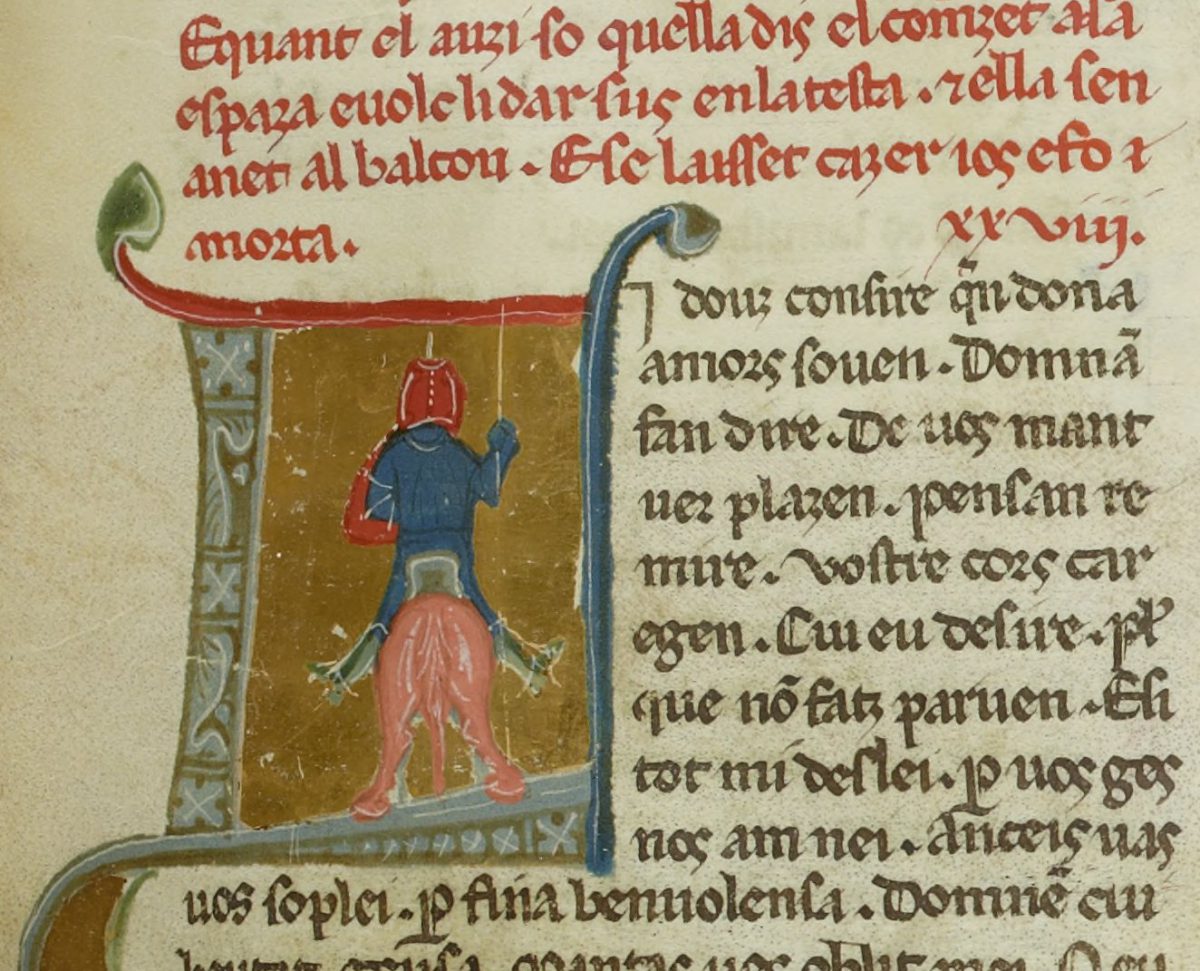 Equant el auzi so quella dis el comzet ala
espaza e uolc li dar sus en la testa . ⁊ ella sen
anet al balcon . Ese laisset cazer ios e fo
morta . xxviii.
I douz consire q̄n dona
amors souen . Domnā
fan dire . De uos mant
uer plazen . pensan re
mire . vostre cors car
egen . Cui eu desire .
que nō fatz paruen . Esi
tot mi deslei . ꝑ uos ges
nos am nei . anceis uas
uos soplei . ꝑ fina benuolensa . Domnē cui
uos oblit mei